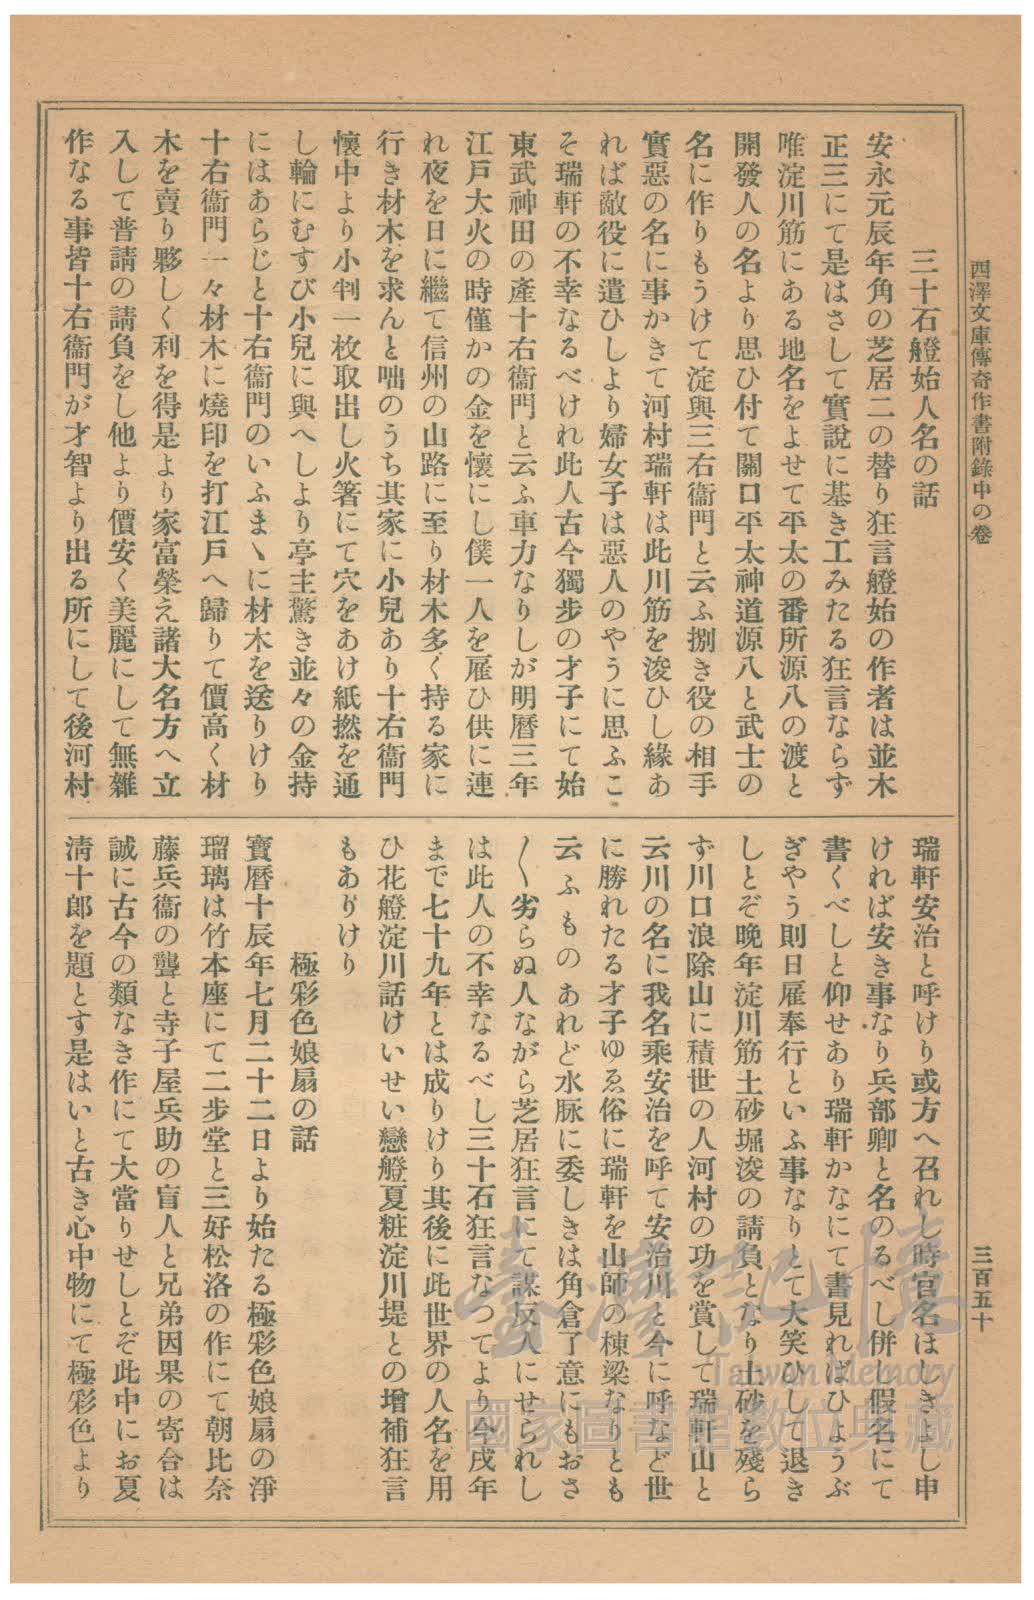 西澤文庫傳奇作書附錄中の卷
三百五十
三十石艠始人名の話
安永元辰年角の芝居二の替り狂言艠始の作者は並木
正三にて是はさして實說に基き工みたる狂言ならず
唯淀川筋にある地名をよせて平太の番所源八の渡と
開發人の名より思ひ付て關口平太神道源八と武士の
名に作りもうけて淀與三右衞門と云ふ捌き役の相手
實惡の名に事かきて河村瑞軒は此川筋を浚ひし緣あ
れば敵役に遣ひしより婦女子は惡人のやうに思ふこ
そ瑞軒の不幸なるべけれ此人古今獨步の才子にて始
東武神田の產十右衞門と云ふ車力なりしが明曆三年
江戶大火の時僅かの金を懷にし僕一人を雇ひ供に連
れ夜を日に繼て信州の山路に至り材木多く持る家に
行き材木を求んと咄のうち其家に小兒あり十右衞門
懷中より小判一枚取出し火箸にて穴をあけ紙撚を通
し輪にむすび小兒に與へしより亭主驚き並々の金持
にはあらじと十右衞門のいふまゝに材木を送りけり
十右衞門一々材木に燒印を打江戶へ歸りて價高く材
木を賣り夥しく利を得是より家富榮え諸大名方へ立
入して普請の請負をし他より價安く美麗にして無雜
作なる事皆十右衞門が才智より出る所にして後河村
瑞軒安治と呼けり或方へ召れし時官名はしきよし申
ければ安き事なり兵部卿と名のるべし併し假名にて
書くべしと仰せあり瑞軒かなにて書見ればひょうぶ
ぎやう則日雇奉行といふ事なりとて大笑ひして退き
しとぞ晚年淀川筋土砂堀浚の請負となり土砂を殘ら
ず川口浪除山に積世の人河村の功を賞して瑞軒山と
云川の名に我名乘安治を呼て安治川と今に呼など世
に勝れたる才子ゆゑ俗に瑞軒を山師の棟梁なりとも
云ふものあれど水脉に委しきは角倉了意にもおさ
〱劣らぬ人ながら芝居狂言にて謀反人にせられし
は此人の不幸なるべし三十石狂言なつてより今戌年
まで七十九年とは成りけり其後に此世界の人名を用
ひ花艠淀川話けいせい戀艠夏粧淀川堤との增補狂言
もありけり
極彩色娘扇の話
寶曆十辰年七月二十二日より始たる極彩色娘扇の淨
瑠璃は竹本座にて二步堂と三好松洛の作にて朝比奈
藤兵衞の聾と寺子屋兵助の盲人と兄弟因果の寄合は
誠に古今の類なき作にて大當りせしとぞ此中にお夏
淸十郎を題とす是はいと古き心中物にて極彩色より
臺灣記憶
Taiwan Memory
國家圖書館數位典藏